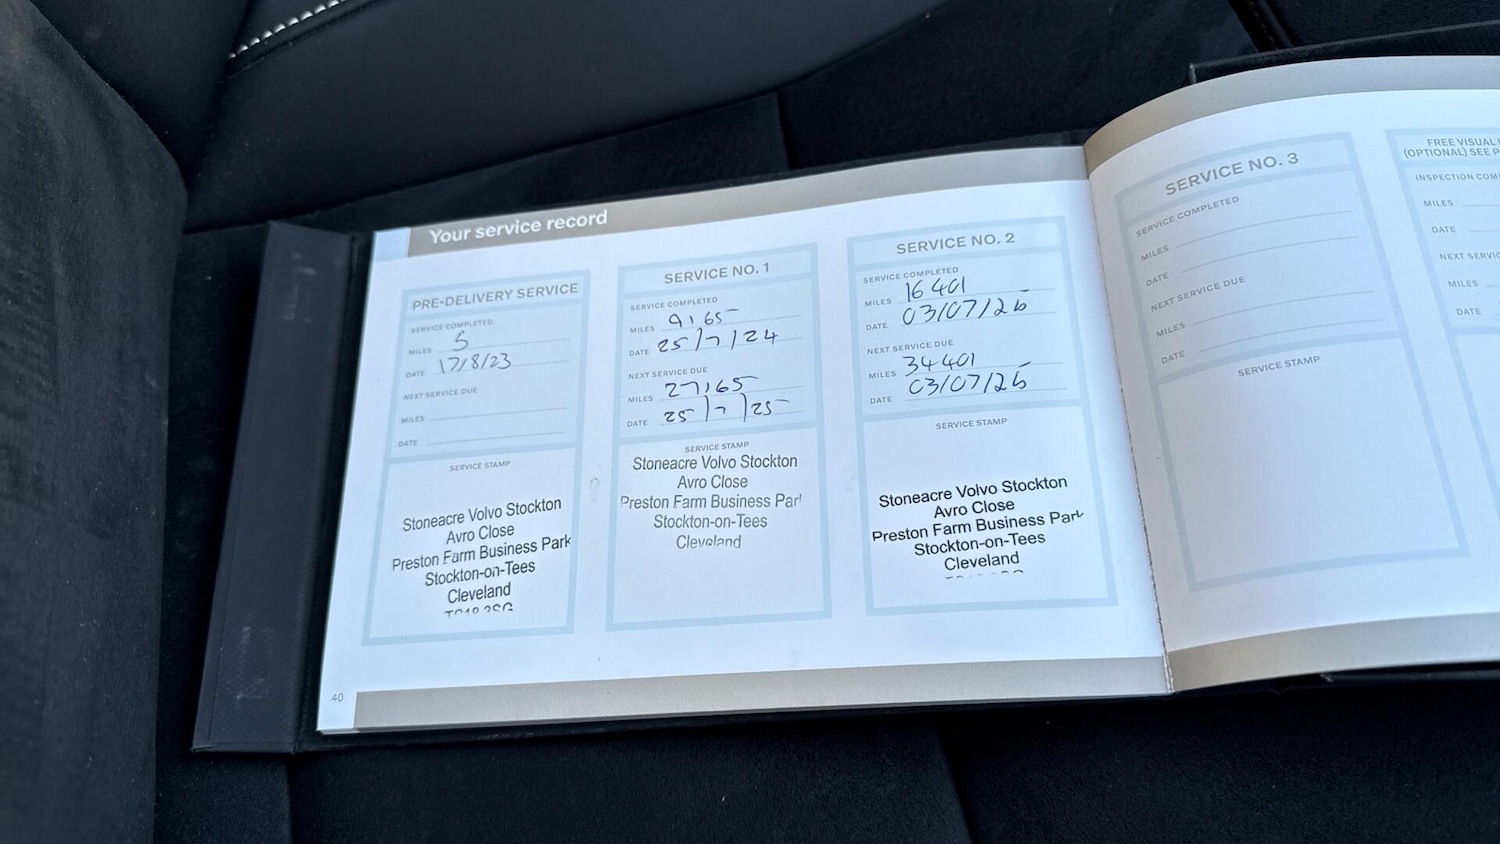 Your service record
PRE-DELIVERY SERVICE
SERVICE COMPLETED
MILES 5
DATE 17/8/23
NEXT SERVICE DUE
MILES
DATE
SERVICE STAMP
Stoneacre Volvo Stockton
Avro Close
Preston Farm Business Park
Stockton-on-Tees
Cleveland
SERVICE NO. 1
SERVICE COMPLETED
MILES 9165
DATE 25/7/24
NEXT SERVICE DUE
MILES 27165
DATE 25/7/25
SERVICE STAMP
Stoneacre Volvo Stockton
Avro Close
Preston Farm Business Park
Stockton-on-Tees
Cleveland
SERVICE NO. 2
SERVICE COMPLETED
MILES 16401
DATE 03/07/
NEXT SERVICE DUE
MILES 34401
DATE 03/07/
SERVICE STAMP
Stoneacre Volvo Stockton
Avro Close
Preston Farm Business Park
Stockton-on-Tees
Cleveland
40
SERVICE NO. 3
SERVICE COMPLETED
MILES
DATE
NEXT SERVICE DUE
MILES
DATE
SERVICE STAMP
FREE VISUAL
(OPTIONAL) SEE P
INSPECTION COM
MILES
DATE
NEXT SERVIC
MILES
DATE